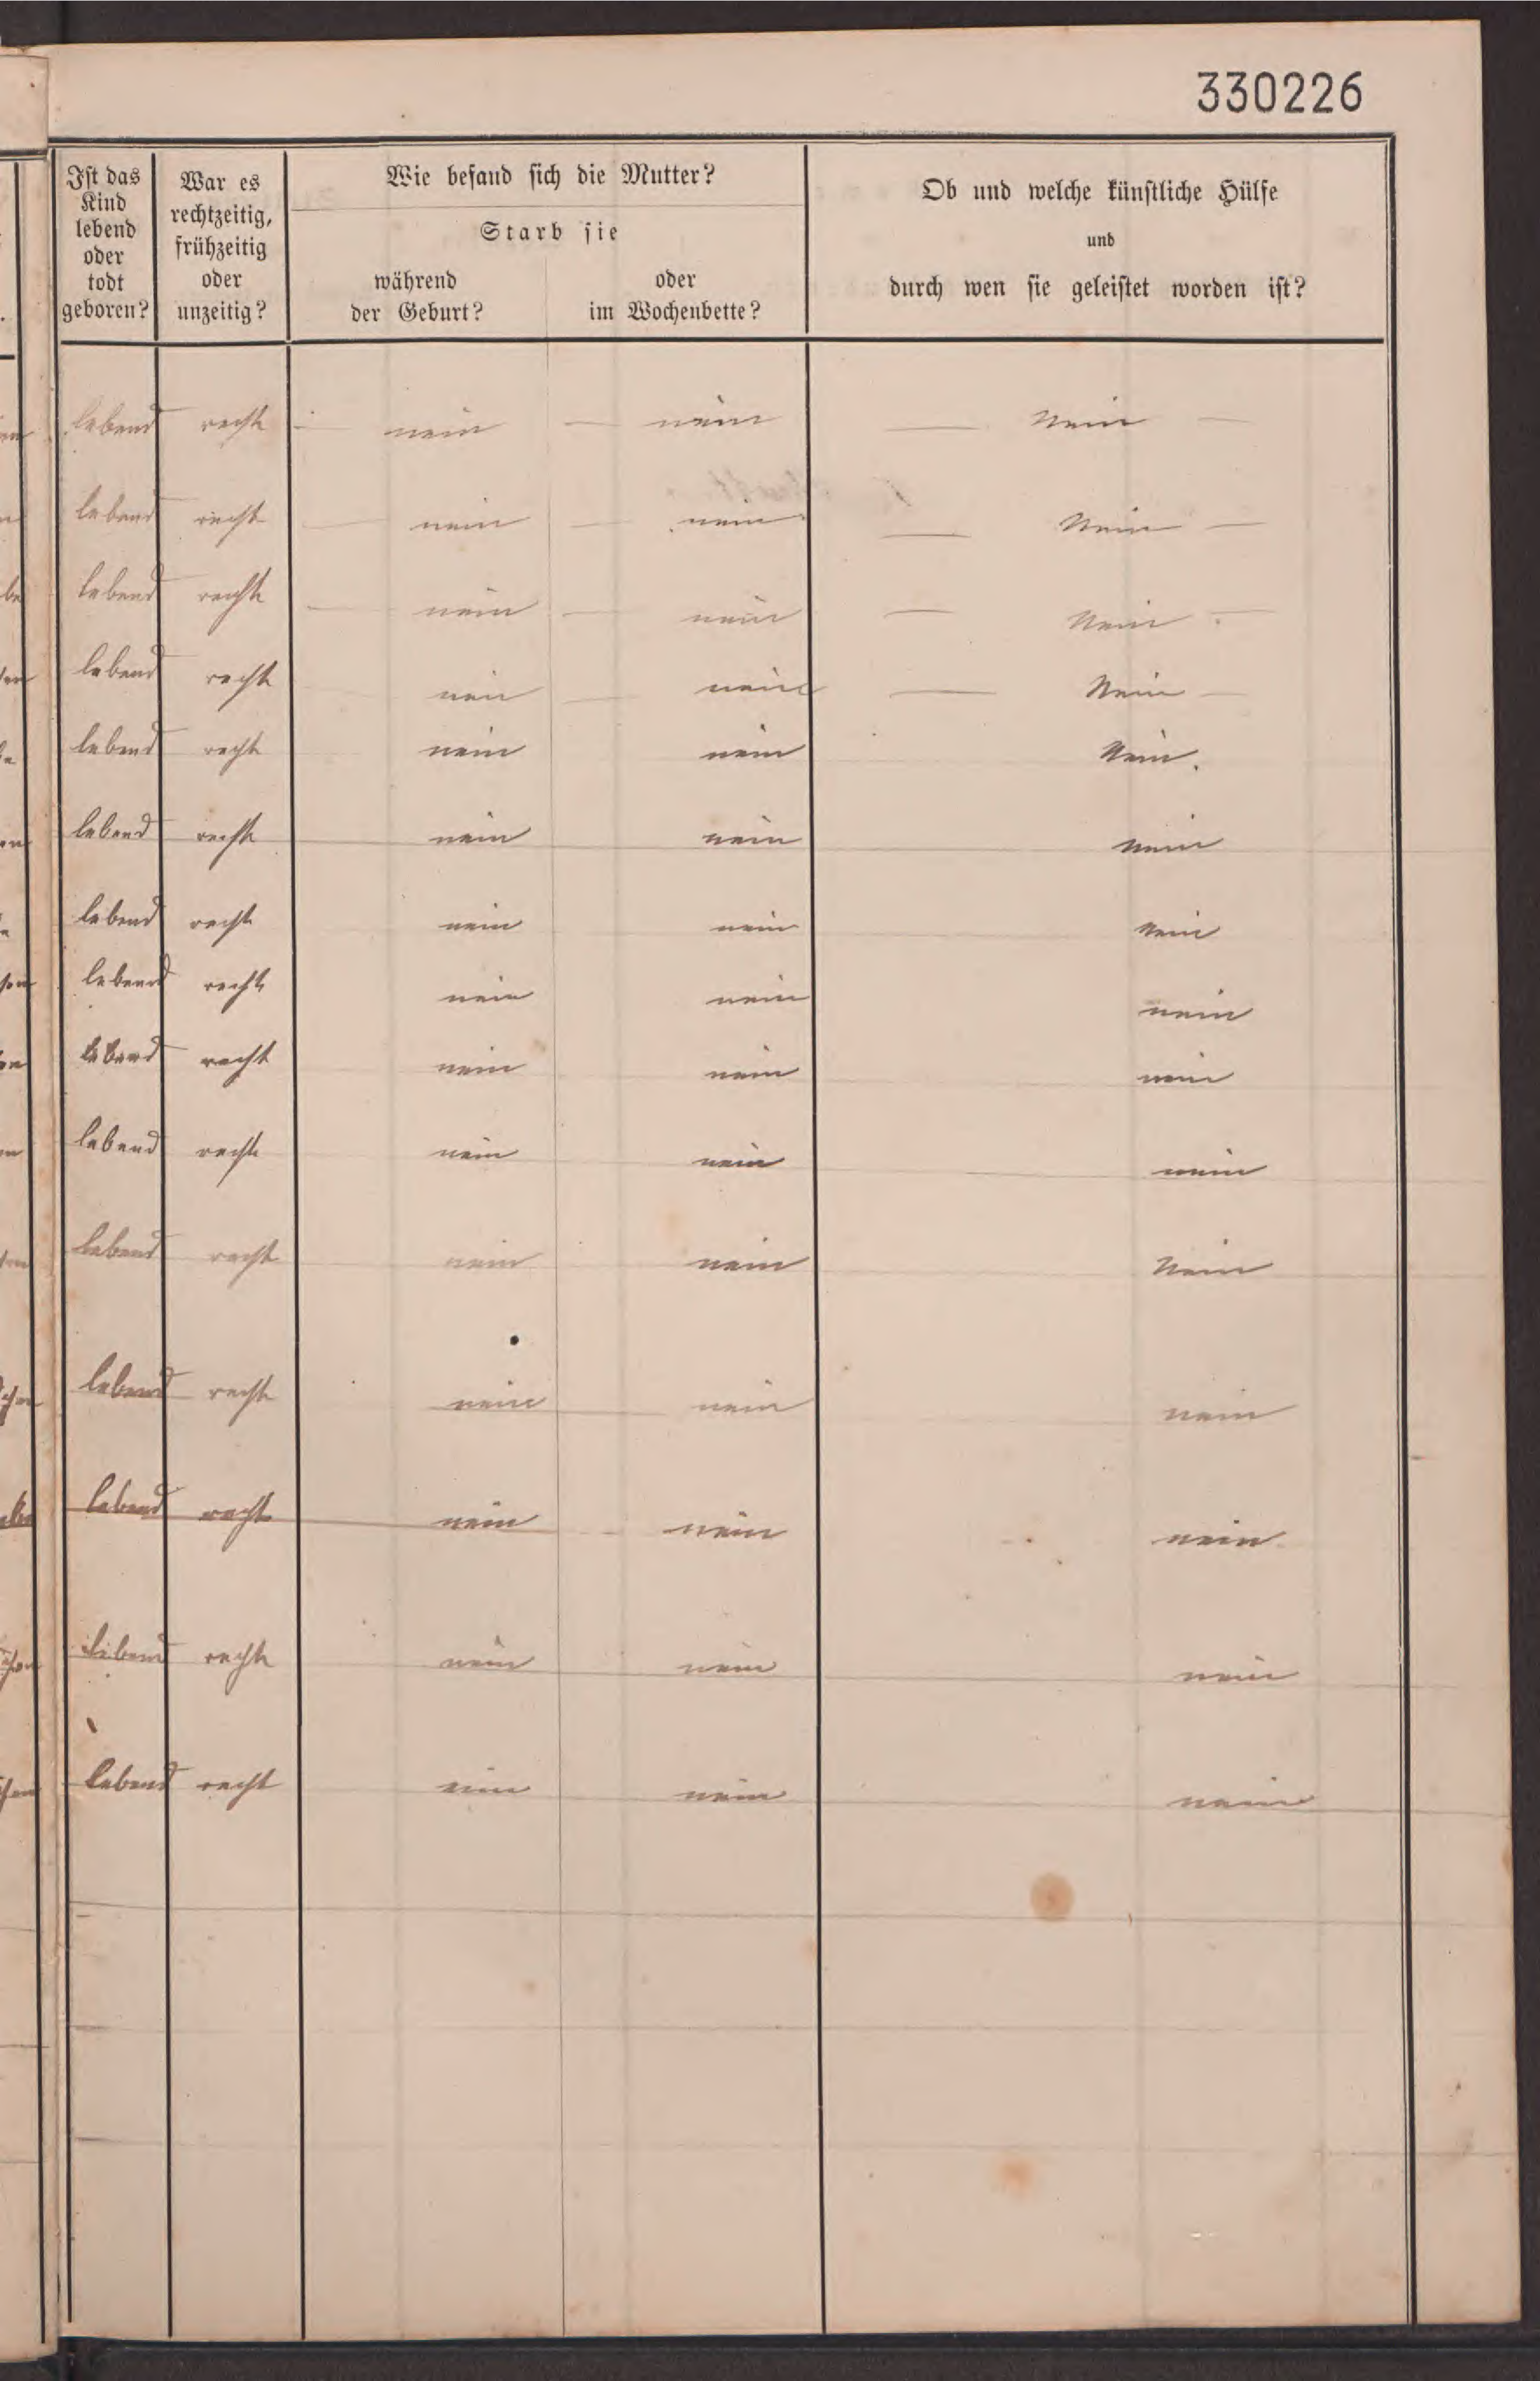 330226
Ist das Kind lebend oder todt geboren?
War es rechtzeitig, frühzeitig oder unzeitig?
Wie befand sich die Mutter?
Starb sie
während der Geburt?
oder im Wochenbette?
Ob und welche künstliche Hülfe
und
durch wen sie geleistet worden ist?
lebend recht nein nein Nein
lebend recht nein nein Nein
lebend recht nein nein Nein
lebend recht nein nein Nein
lebend recht nein nein Nein.
lebend recht nein nein nein
lebend recht nein nein nein
lebend recht nein nein nein
lebend recht nein nein nein
lebend recht nein nein nein
lebend recht nein nein Nein
lebend recht nein nein nein
lebend recht nein nein nein
lebend recht nein nein nein
lebend recht nein nein nein